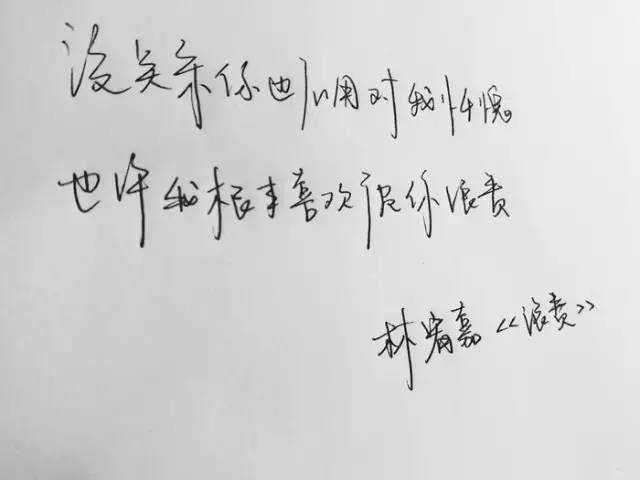 没关系你也不用对我惭愧
也许我根本喜欢被你浪费
林宥嘉《浪费》